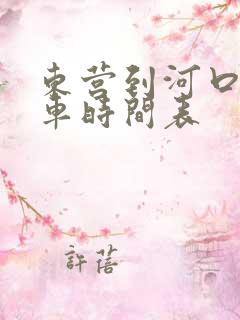 东营到河口
車時間表
許蓓